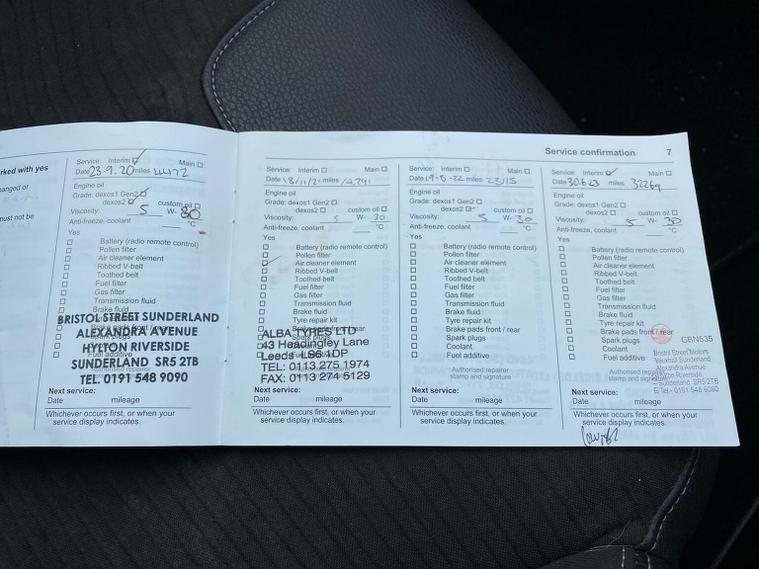 Service confirmation 7
rked with yes
anged or
must not be
Service: Interim Main
Date 23.9.20 miles
Engine oil
Grade: dexos1 Gen2
dexos2 custom oil
Viscosity: 5 W- 30
Anti-freeze, coolant °C
Yes
Battery (radio remote control)
Pollen filter
Air cleaner element
Ribbed V-belt
Toothed belt
Fuel filter
Gas filter
Transmission fluid
Brake fluid
BRISTOL STREET SUNDERLAND
ALEXANDRA AVENUE
HYLTON RIVERSIDE
SUNDERLAND SR5 2TB
TEL. 0191 548 9090
Next service:
Date mileage
Whichever occurs first, or when your
service display indicates.
Service: Interim Main
Date 18/11/21 miles
Engine oil
Grade: dexos1 Gen2
dexos2 custom oil
Viscosity: 5 W- 30
Anti-freeze, coolant °C
Yes
Battery (radio remote control)
Pollen filter
Air cleaner element
Ribbed V-belt
Toothed belt
Fuel filter
Gas filter
Transmission fluid
Brake fluid
Tyre repair kit
Brake pads front / rear
ALBA TYRES LTD
43 Headingley Lane
Leeds LS6 1DP
TEL: 0113 275 1974
FAX: 0113 274 5129
Next service:
Date mileage
Whichever occurs first, or when your
service display indicates.
Service: Interim Main
Date miles 23115
Engine oil
Grade: dexos1 Gen2
dexos2 custom oil
Viscosity: 5 W- 30
Anti-freeze, coolant °C
Yes
Battery (radio remote control)
Pollen filter
Air cleaner element
Ribbed V-belt
Toothed belt
Fuel filter
Gas filter
Transmission fluid
Brake fluid
Tyre repair kit
Brake pads front / rear
Spark plugs
Coolant
Fuel additive
Authorised repairer
stamp and signature
Next service:
Date mileage
Whichever occurs first, or when your
service display indicates.
Service: Interim Main
Date 30.6.23 miles 32269
Engine oil
Grade: dexos1 Gen2
dexos2 custom oil
Viscosity: 5 W- 30
Anti-freeze, coolant °C
Yes
Battery (radio remote control)
Pollen filter
Air cleaner element
Ribbed V-belt
Toothed belt
Fuel filter
Gas filter
Transmission fluid
Brake fluid
Tyre repair kit
Brake pads front / rear
Spark plugs GBN535
Coolant
Fuel additive
Bristol Street Motors
Vauxhall Sunderland
Alexandra Avenue
Hylton Riverside
Sunderland SR5 2TB
Tel - 0191 548 9090
Authorised repairer
stamp and signature
Next service:
Date mileage
Whichever occurs first, or when your
service display indicates.